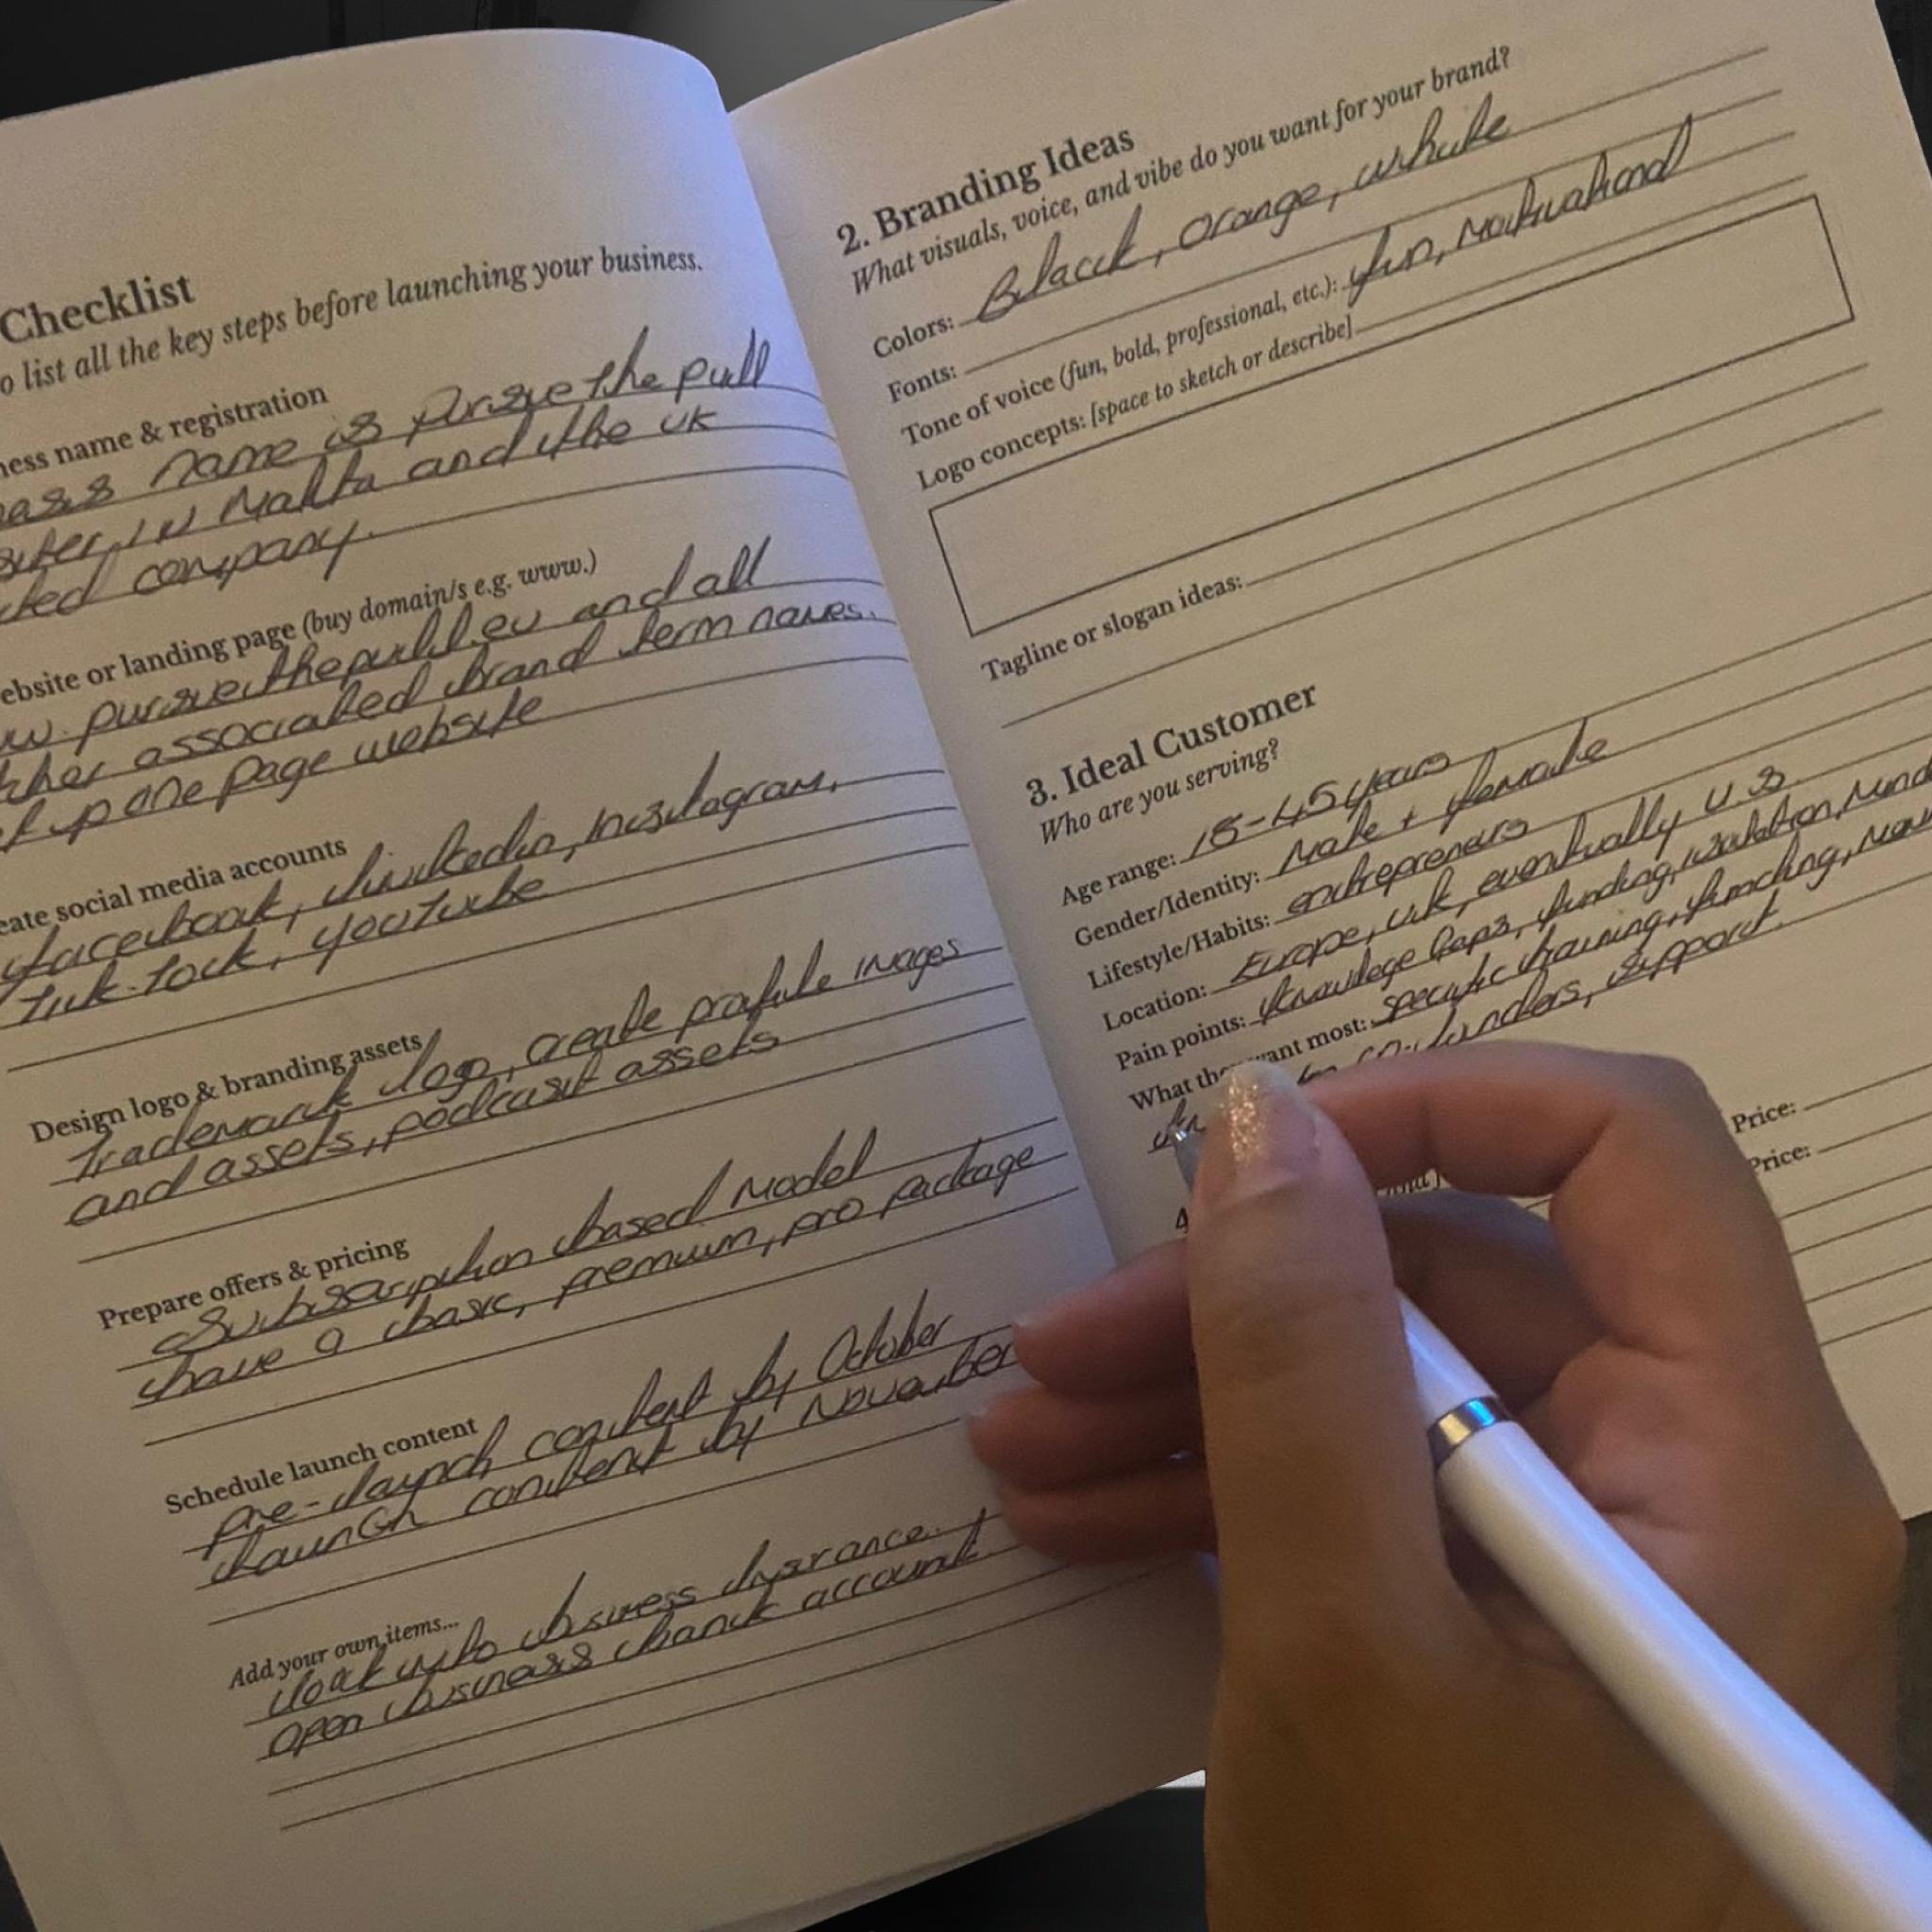 Checklist
o list all the key steps before launching your business.
ness name & registration
ness name is pursue the pull
in Malta and the UK
company.
ebsite or landing page (buy domain/s e.g. www.)
w. pursuethepull.eu and all
other associated brand term names.
up one page website
eate social media accounts
facebook, linkedin, instagram,
Tik-Tock, youtube
Design logo & branding assets
Trademark logo, create profile images
and assets, podcast assets
Prepare offers & pricing
Subscription based Model
have a basic, premium, pro package
Schedule launch content
pre-launch content by October
launch content by November
Add your own items...
look into business insurance.
open business bank account
2. Branding Ideas
What visuals, voice, and vibe do you want for your brand?
Colors: Black, orange, white
Fonts:
Tone of voice (fun, bold, professional, etc.): fun, Motivational
Logo concepts: [space to sketch or describe]
Tagline or slogan ideas:
3. Ideal Customer
Who are you serving?
Age range: 18-45 years
Gender/Identity: Male + female
Lifestyle/Habits: entrepreneurs
Location: Europe, uk, eventually US
Pain points: knowlege Gaps, funding, isolation, Mind
What they want most: specific training, funding,
co-funders, support.
4
Price:
Price: